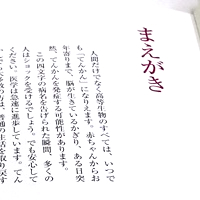 まえがき
人間だけでなく高等生物のすべては、いつで
も「てんかん」になりえます。赤ちゃんからお
年寄りまで、脳が生きているかぎり、ある日突
然、てんかんを発症する可能性があります。
この四文字の病名を告げられた瞬間、多くの
人はショックを受けるでしょう。でも安心して
ください。医学は急速に進歩しています。てん
の方は、普通の生活を取り戻す